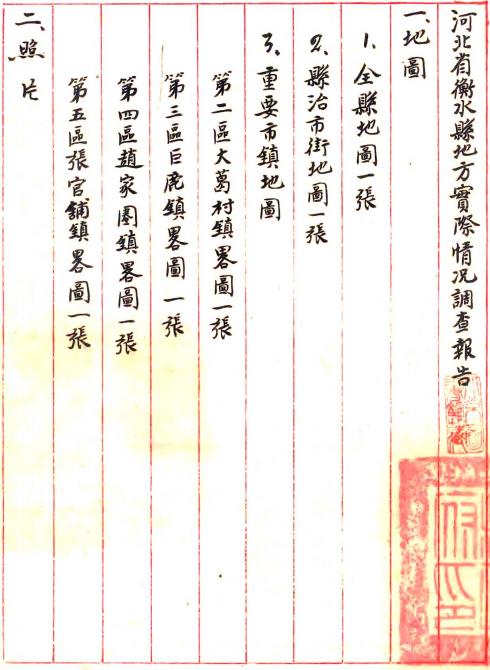 河北省衡水縣地方實際情况調查報告
一、地圖
1、全縣地圖一張
2、縣治市街地圖一張
3、重要市鎮地圖
第二區大葛村鎮畧圖一張
第三區巨鹿鎮畧圖一張
第四區趙家圈鎮畧圖一張
第五區張官舖鎮畧圖一張
二、照片